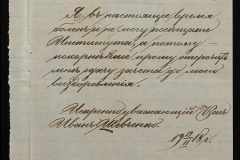 Я въ настоящее время
боленъ и не могу посещать
Института, а потому
покорнѣйше прошу
мнѣ до моего
выздоровленія.
Искренно уважающій Васъ
Иванъ Шевченко